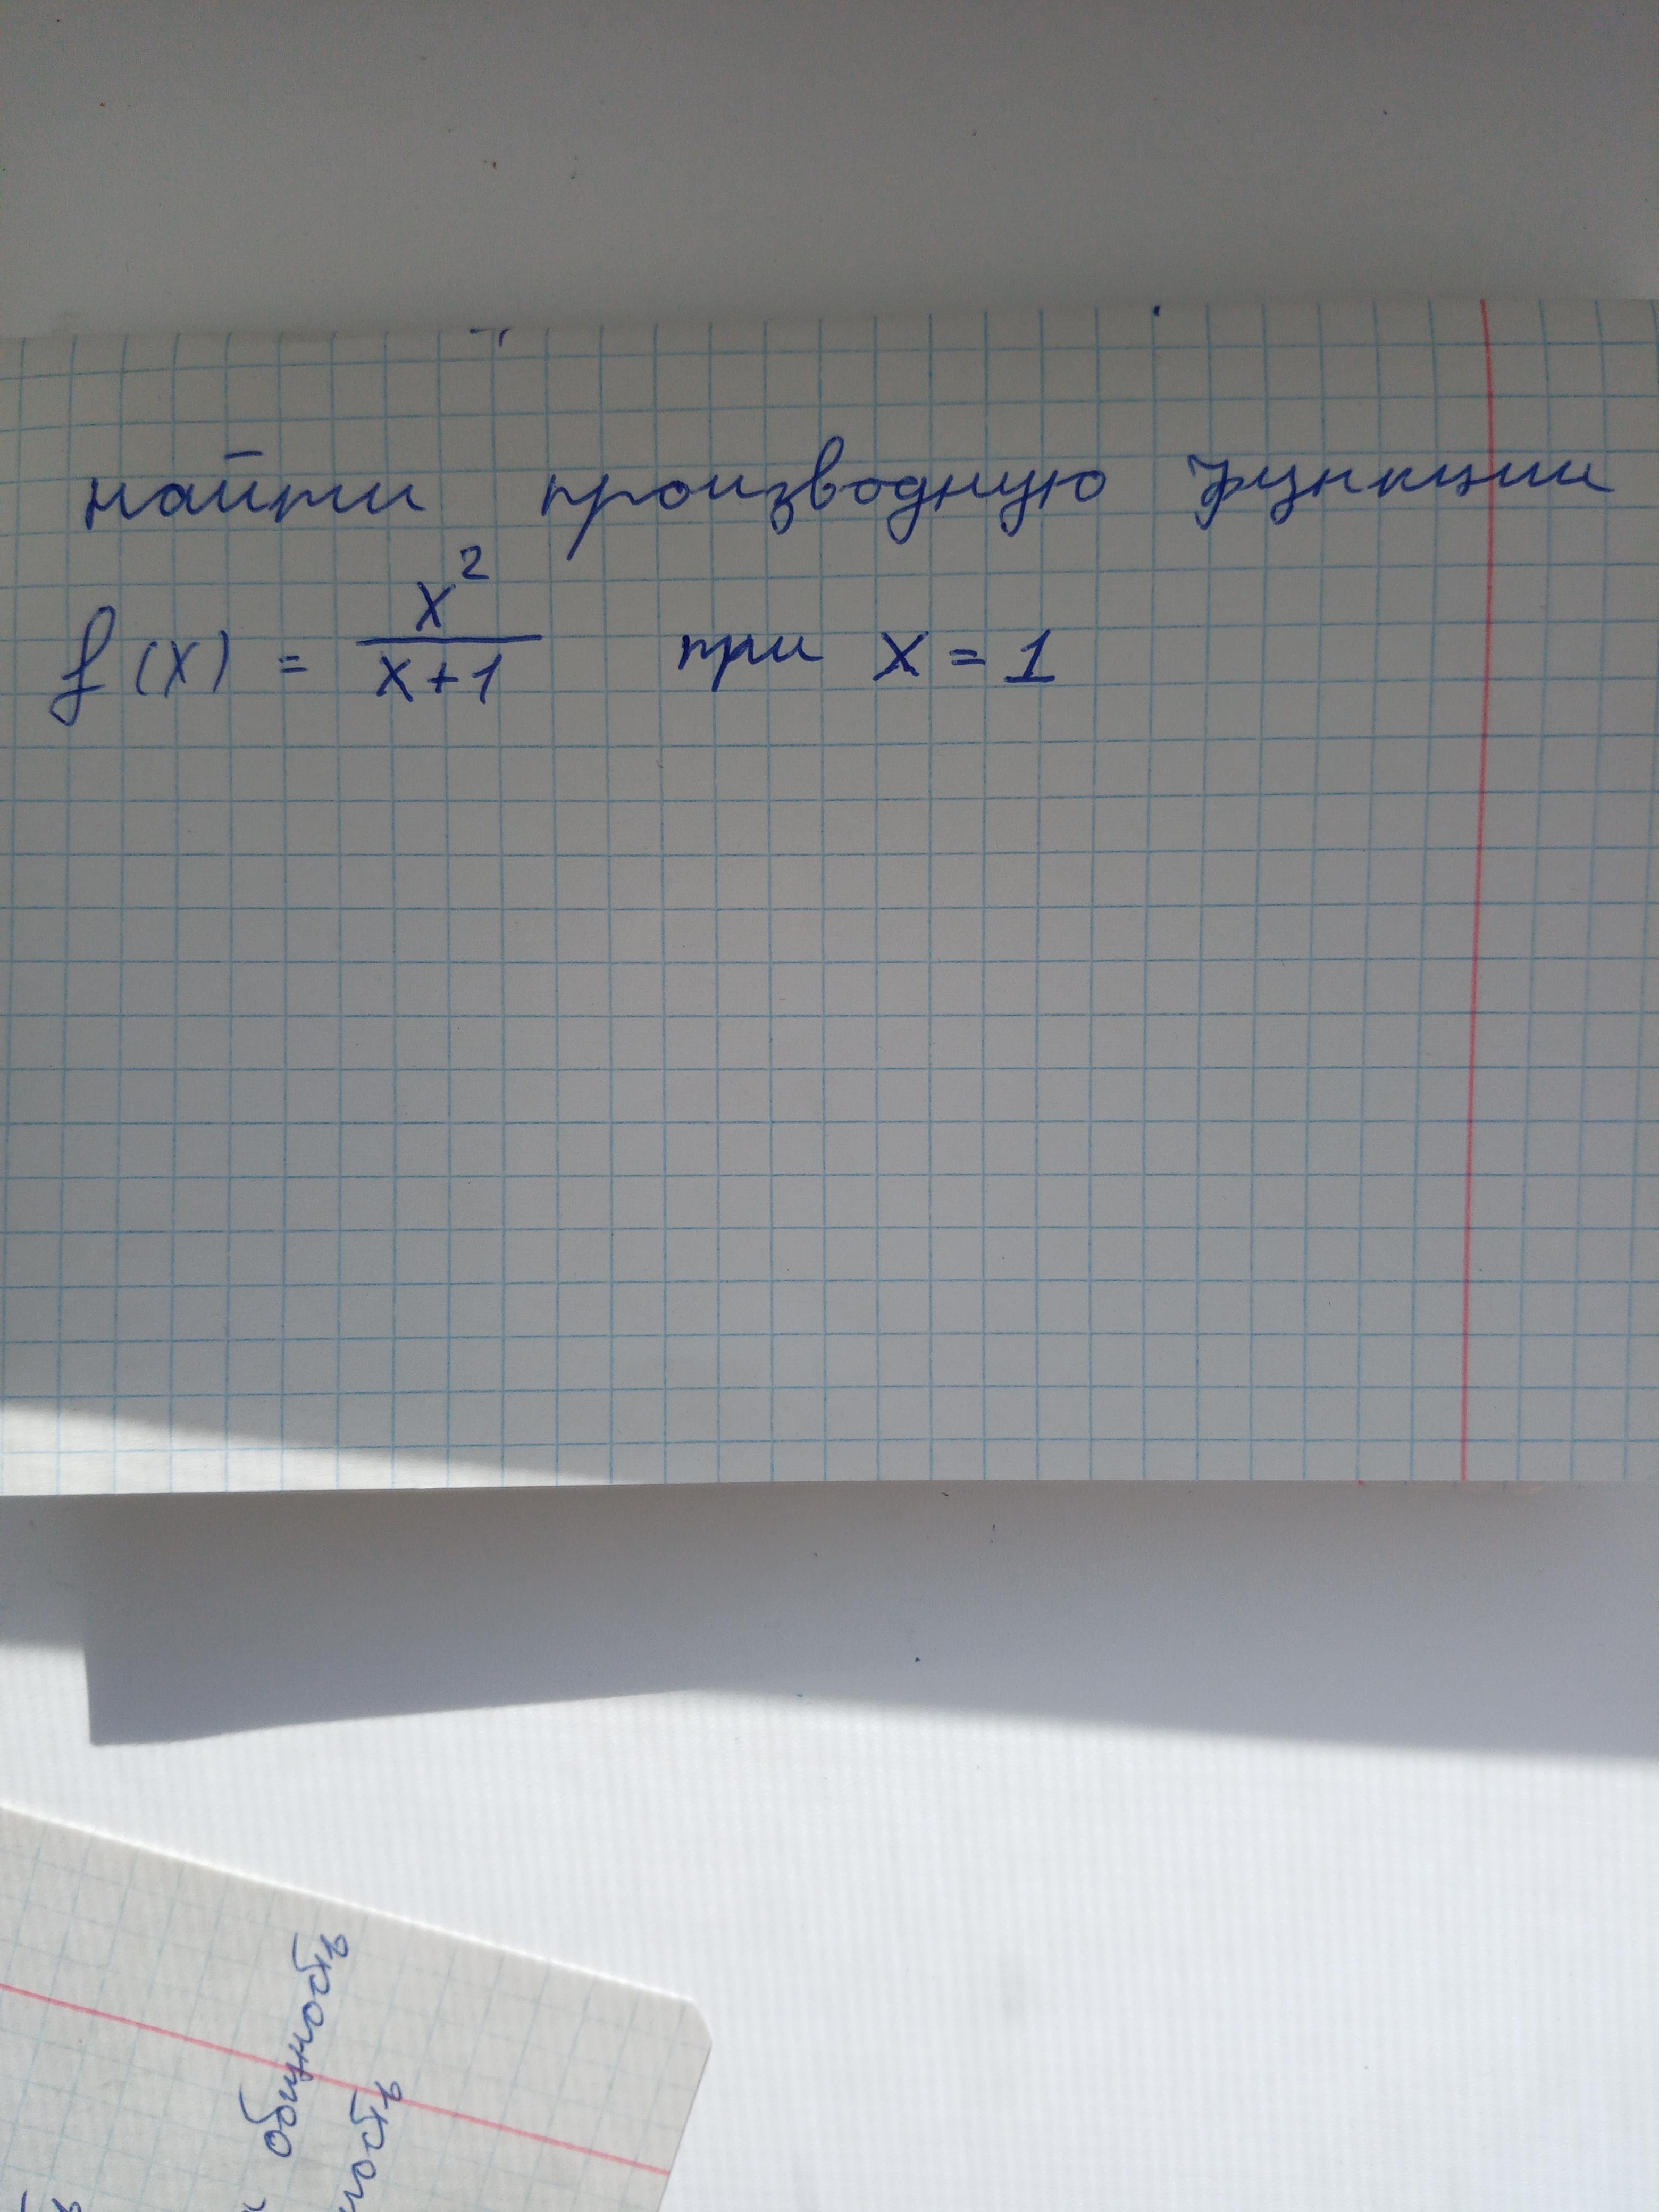 найти производную функции
f(x) = x²/(x+1) при x = 1
общность
ность